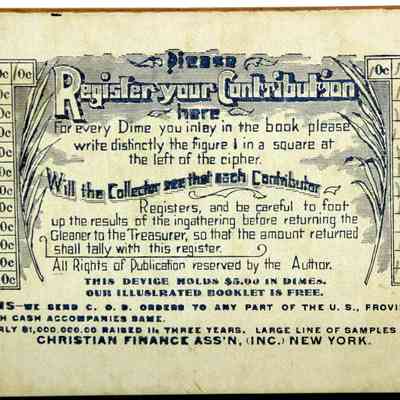 Please
Register your Contribution
here
For every Dime you inlay in the book please
write distinctly the figure 1 in a square at
the left of the cipher.
Will the Collector see that each Contributor
Registers, and be careful to foot
up the results of the ingathering before returning the
Gleaner to the Treasurer, so that the amount returned
shall tally with this register.
All Rights of Publication reserved by the Author.
THIS DEVICE HOLDS $5.00 IN DIMES.
OUR ILLUSLRATED BOOKLET IS FREE.
NS-WE SEND C. O. D. ORDERS TO ANY PART OF THE U. S., PROVI
H CASH ACCOMPANIES SAME.
RLY $1,000,000.00 RAISED IN THREE YEARS. LARGE LINE OF SAMPLES
CHRISTIAN FINANCE ASS'N, (INC.) NEW YORK.
/0c
0c
/0c
/0c
0c
0c
0c
0c
0c
0c
0c
0c